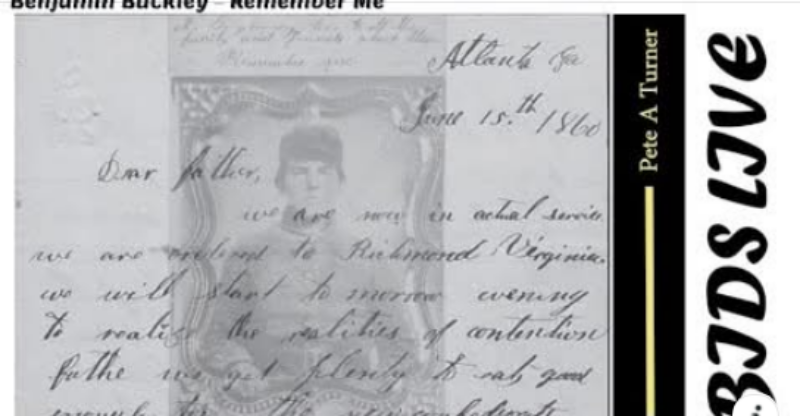 Benjamin Buckley – Remember Me
Remember me
Atlanta Ga
June 15.th 1860
Dear father,
we are now in actual service
we are ordered to Richmond Virginia.
we will start to morrow evening
to realize the realities of contention
fathe we get plenty to eat good
enough for the
Pete A Turner
BJDS LIVE